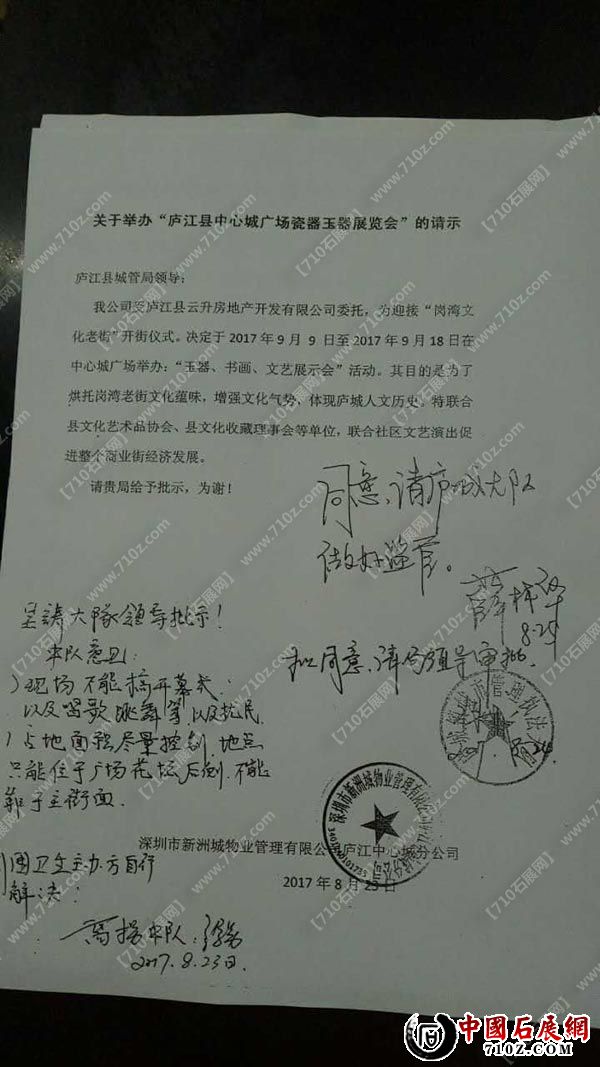 关于举办“庐江县中心城广场瓷器玉器展览会”的请示
庐江县城管局领导：
我公司受庐江县云升房地产开发有限公司委托，为迎接“岗湾文
化老街”开街仪式。决定于2017年9月 9 日至2017年9月18日在
中心城广场举办：“玉器、书画、文艺展示会”活动。其目的是为了
烘托岗湾老街文化蕴味，增强文化气势、体现庐城人文历史。特联合
县文化艺术品协会、县文化收藏理事会等单位，联合社区文艺演出促
进整个商业街经济发展。
请贵局给予批示，为谢！
同意，请庐城大队
做好监管。
薛
8.25
拟同意，请局领导审批。
呈 大隊领导批示！
中队意见：
)现场不能搞开幕式
以及唱歌跳舞等以及扰民
)占地面积尽量控制 地点
只能位于广场花坛后侧 不能
靠于主街面
)围卫生主办方自行
解决：
中队：
2017.8.23日
深圳市新洲城物业管理有限公司庐江中心城分公司
2017年8月23日
深圳市新洲城物业管理有限公司
管理执法
【710石展网】
www.710z.com
中國石展網
710Z.COM